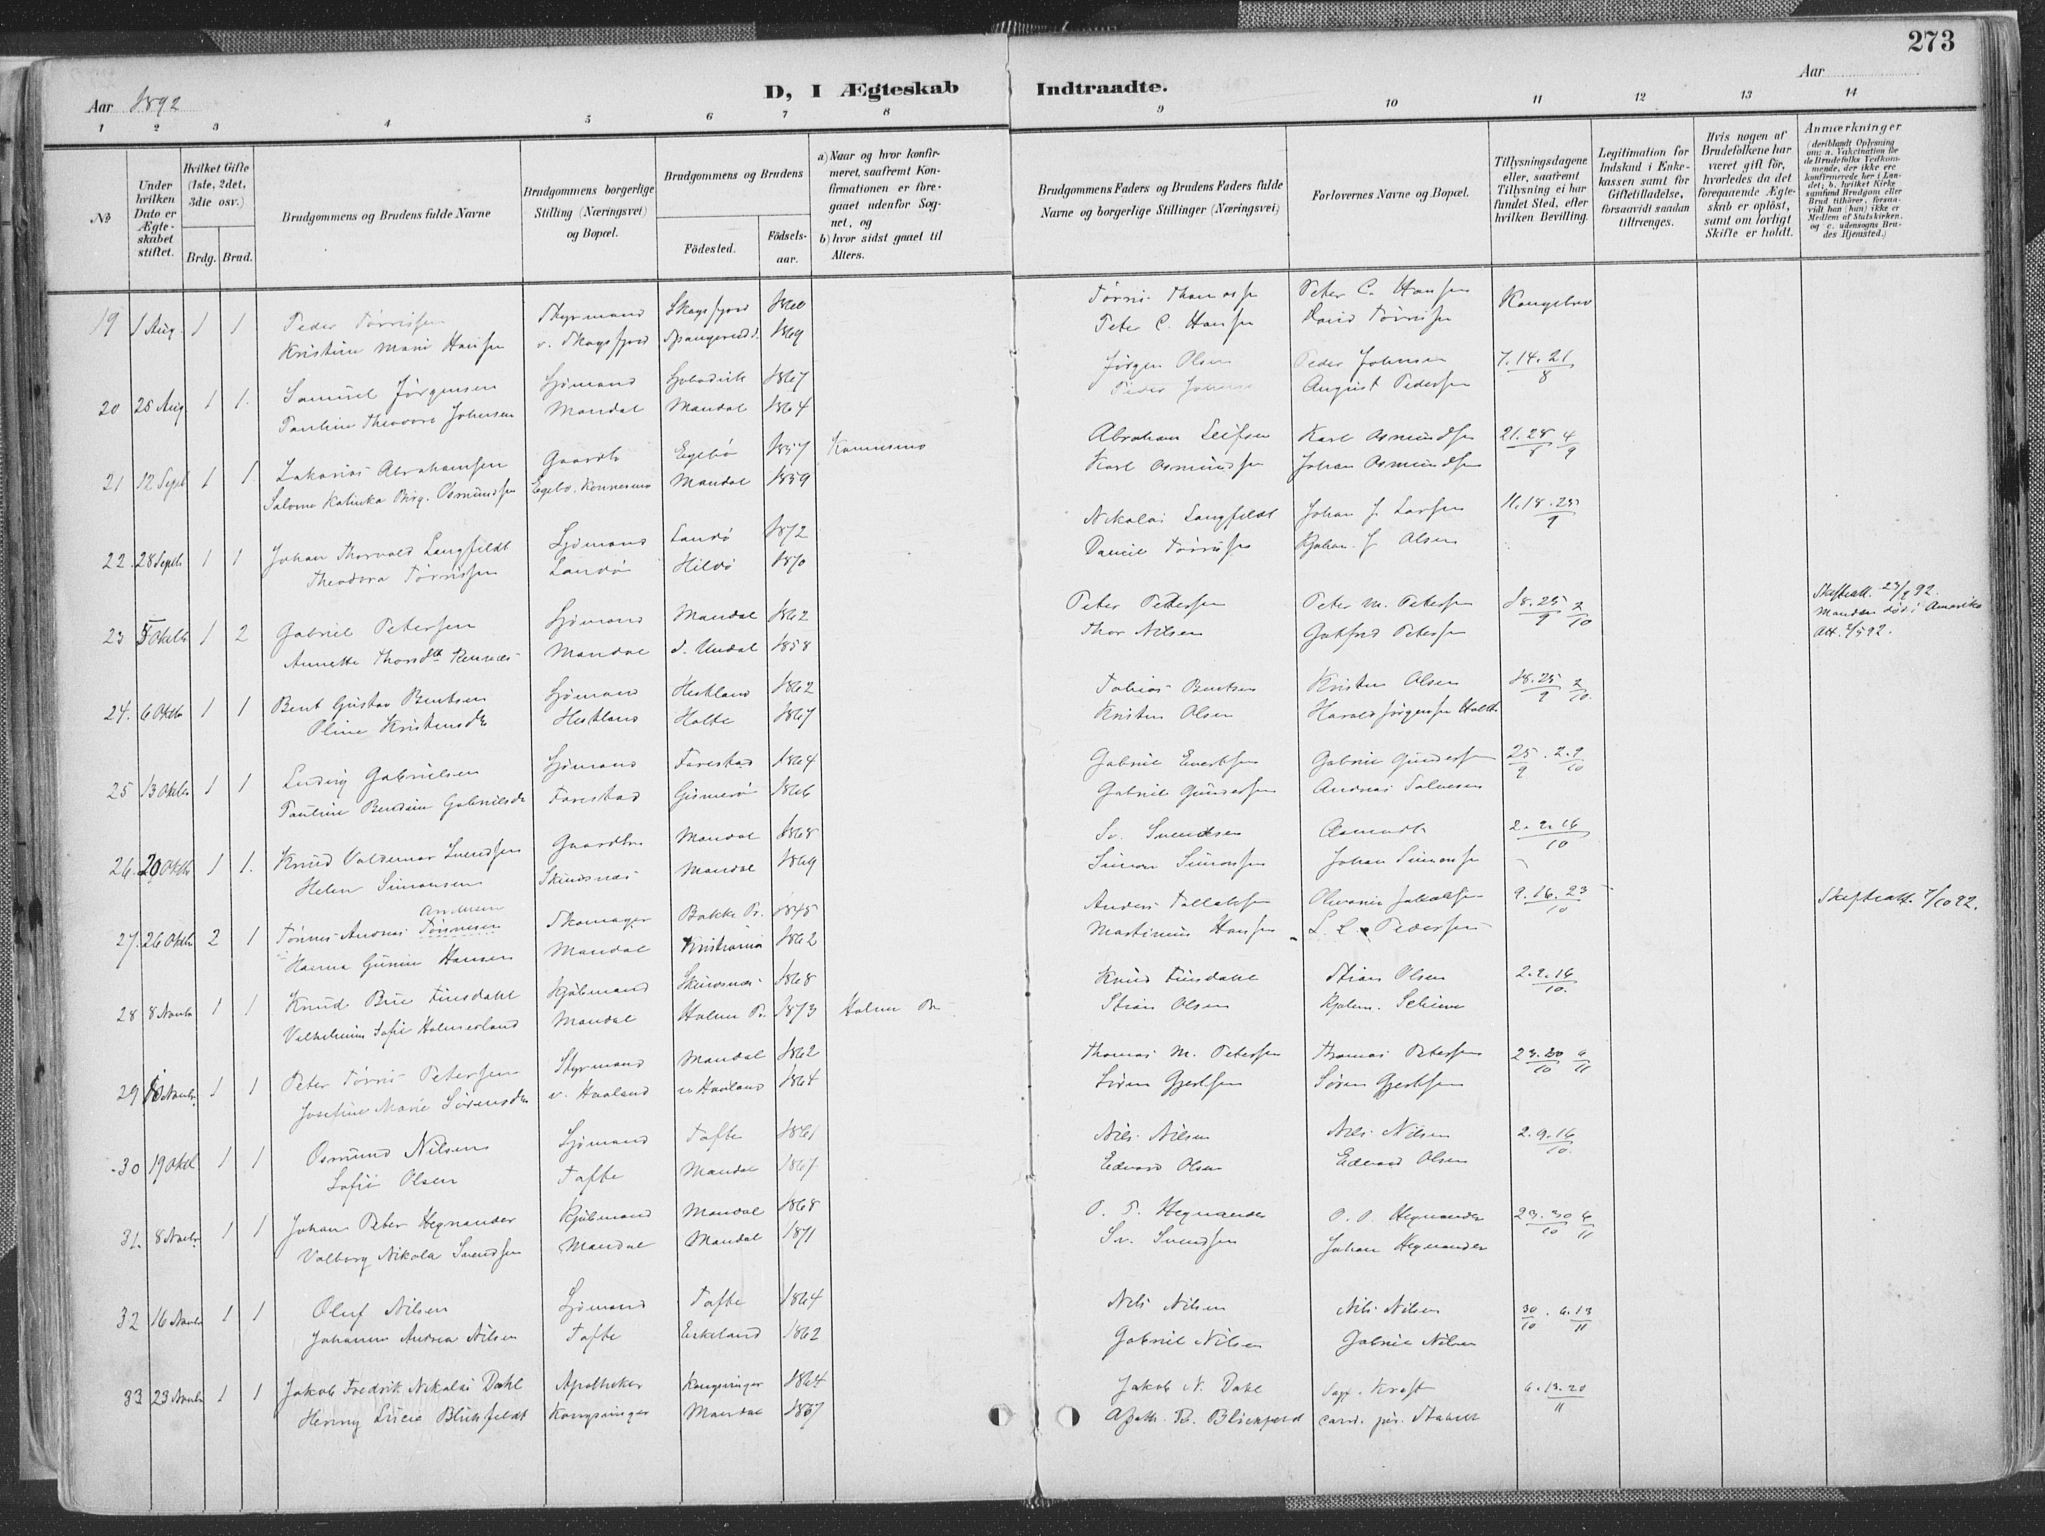 273
Aar 1892
D, I Ægteskab Indtraadte.
Aar
1 2 3 4 5 6 7 8 9 10 11 12 13 14
No
Under hvilken Dato er Ægteskabet stiftet.
Hvilket Gifte (1ste, 2det, 3die osv.)
Brdg. Brud.
Brudgommens og Brudens fulde Navne
Brudgommens borgerlige Stilling (Næringsvei) og Bopæl.
Brudgommens og Brudens
Fødested. Fødselsaar.
a) Naar og hvor konfirmeret, saafremt Konfirmationen er foregaaet udenfor Sognet, og
b) hvor sidst gaaet til Alters.
Brudgommens Faders og Brudens Faders fulde Navne og borgerlige Stillinger (Næringsvei)
Forlovernes Navne og Bopæl.
Tillysningsdagene eller, saafremt Tillysning ei har fundet Sted, efter hvilken Bevilling.
Legitimation for Indskud i Enkekassen samt for Giftetilladelse, forsaavidt saadan tiltrænges.
Hvis nogen af Brudefolkene har været gift før, hvorledes da det foregaaende Ægteskab er opløst, samt om lovligt Skifte er holdt.
Anmærkninger (deriblandt Oplysning om: a. Vakcination for de Brudefolks Vedkommende, der ikke ere konfirmerede her i Landet; b. hvilket Kirkesamfund Brudgom eller Brud tilhører, forsaavidt han (hun) ikke er Medlem af Statskirken. og c. udensogns Brudes Hjemsted.)
19 1 Aug. 1 1 Peder Tørrissen Styrmand Skogsfjord 1860 Tørris Peter C. Hansen Kongebrev
Kristine Marie Hansen v. Skogsfjord 1869 Peter C. Hansen David Tørrisen
20 25 Aug 1 1. Samuel Jørgensen Sjømand 1867 Jørgen Olsen Peder Johnsen 7.14.21/8
Pauline Theodora Johnsen Mandal Mandal 1864 Peder August Pedersen
21 12 Sept 1 1. Zakarias Abrahamsen Gaardbr Egebø 1857 Konnesmo Abraham Leifsen Karl Osmundsen 21.28/8 4/9
Salome Katinka Birg. Osmundsen Egebø. Konnesmo Mandal 1859 Karl Osmundsen Johan Osmundsen
22. 28 Septb 1 1 Johan Thorvald Langfeldt Sjømand Landø 1872 Nikolai Langfeldt Johan J. Larsen 11.18.25/9
Theodora Tørrissen Landø Hildø 1870 Daniel Tørrisen J. Olsen
23 5 Oktb 1 2 Gabriel Petersen Sjømand Mandal 1862 Peter Petersen Peter M. Petersen 18.25/9 2/10 Skifteatt. 92.
Annette Mandal S. Undal 1858 Thor Nilsen Petersen Manden død i Amerika
Att. 2/5 92.
24. 6 Oktb 1 1 Bent Gustav Bentsen Sjømand Hestland 1862 Tobias Bentsen Kristen Olsen 18.25/9 2/10.
Oline Kristensdr Hestland Holte 1867 Kristen Olsen Harald Jørgensen Holte
25 13 Oktbr 1 1 Ludvig Gabrielsen Sjømand Farestad 1864 Gabriel Evertsen Gabriel Gundersen 25/9 . 2.9/10
Pauline Gabrielsdr Farestad Gismerøi 1866 Gabriel Gundersen Andreas Salvesen
26. 20 Oktb 1 1. Knud Valdemar Svendsen Gaardbr Mandal 1868 Sv. Svendsen 2.9.16/10
Helen Simonsen Skinsnes Mandal 1869 Simon Simonsen Johan Simonsen
Andersen
27. 26 Oktb 2 1 Tønnes Andreas Tønnesen Skomager Bakke Pr. 1845 Anders Tallaksen 9.16.23/10 Skifteatt. 7/10 92.
Hanna Gunine Hansen Mandal Kristiania 1862 Martinius Hansen L. L. Pedersen
28 8 Novbr 1 1 Knud Bue Finsdahl Kjøbmand Skinsnes 1868 Knud Finsdahl Stian Olsen 2.9.16/10.
Vilhelmine Sofie Holmerland Mandal Holme Pr. 1873 Holme Pr. Stian Olsen
29 1 1 Peter Tørris Petersen Styrmand Mandal 1862 Thomas M. Petersen Thomas Petersen 23.30/10 6/11
Josefine Marie Sørensdr v. Haaland v. Haaland 1864 Søren Gjertsen Søren Gjertsen
30 19 Okt. 1 1 Osmund Nilsen Sjømand Tofte 1861 Nils Nilsen Nils Nilsen 2.9.16/10.
Sofie Olsen Tofte Mandal 1867. Edvard Olsen Edvard Olsen
31. 8 Novbr 1 1 Johan Peter Hegnander Kjøbmand Mandal 1868 O. P. Hegnander O. P. Hegnander 23.30/10 6/11
Valborg Nikola Svendsen Mandal Mandal 1871 Sv. Svendsen Johan Hegnander
32 16 Novbr 1 1 Oluf Nilsen Sjømand Tofte 1864 Nils Nilsen Nils Nilsen 30/10 . 6.13/11
Johanne Andrea Nilsen Tofte Eskeland 1862 Gabriel Nilsen Gabriel Nilsen
33 23 Novbr 1 1 Jakob Fredrik Nikolai Dahl Apotheker Kongsvinger 1864 Jakob N. Dahl Kraft 6.13.20/11
Henny Lucie Blichfeldt Kongsvinger Mandal 1867 Apoth. B. Blichfeldt cand. jur.